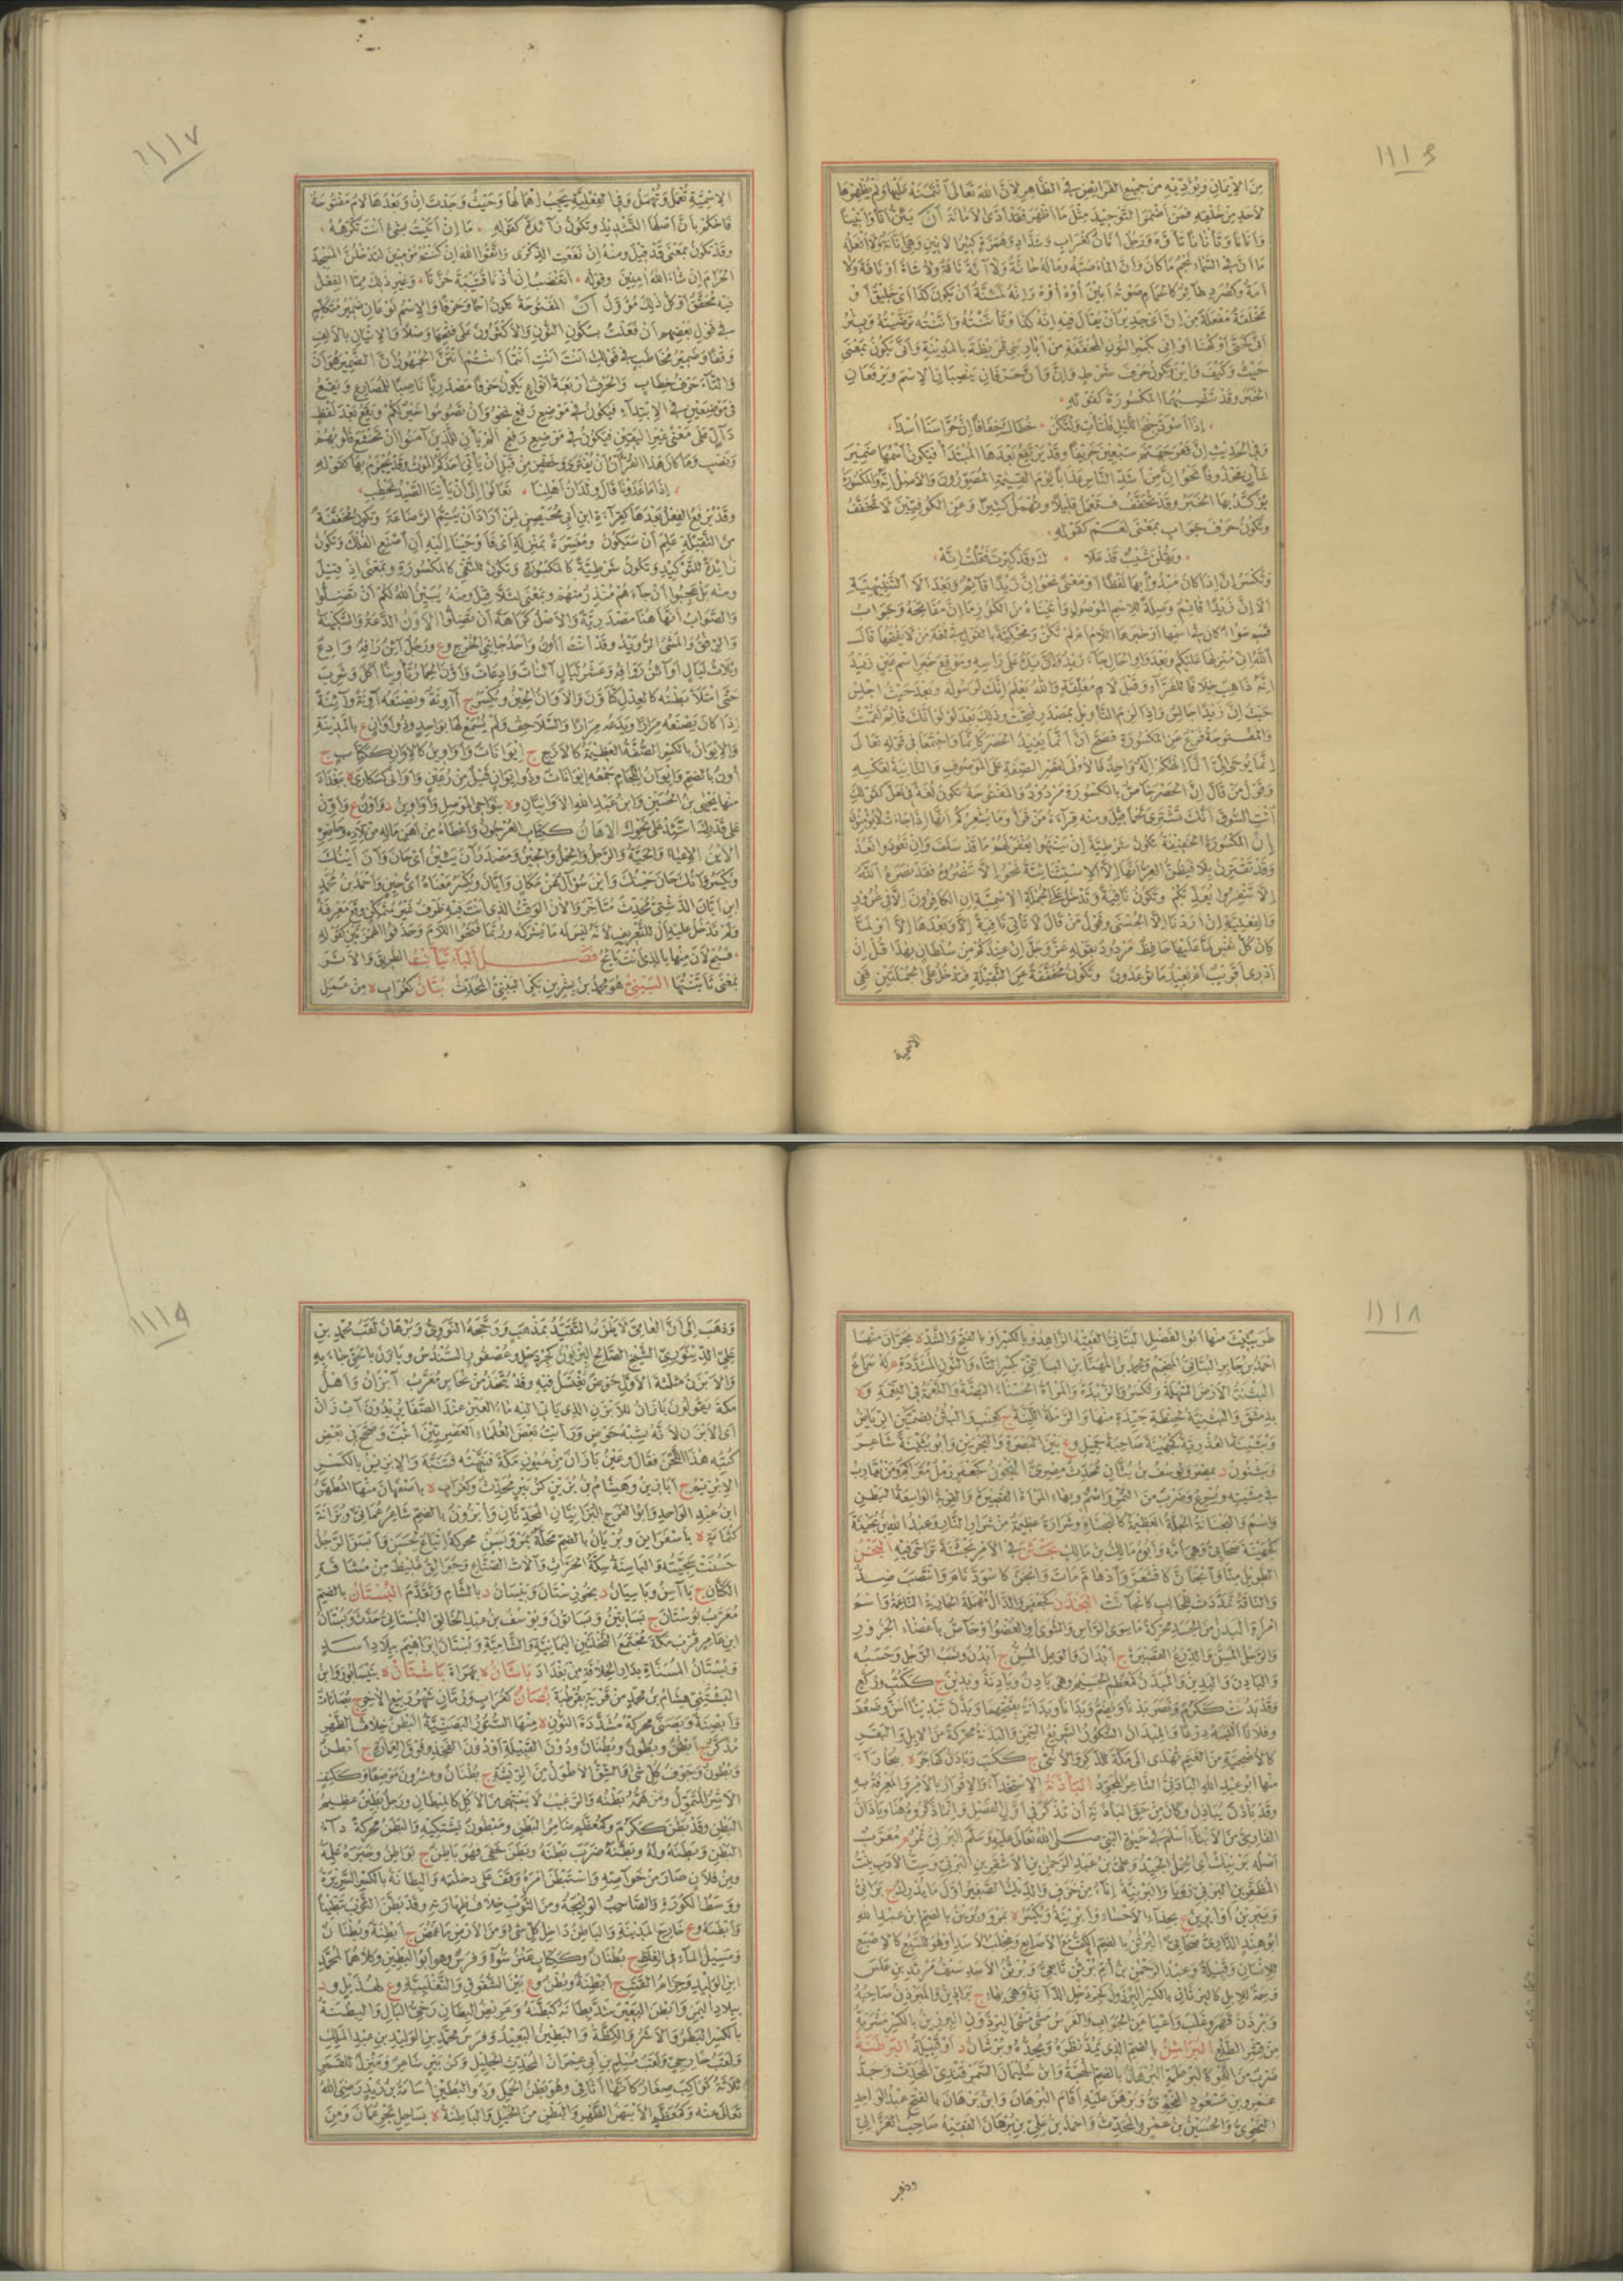 ١١١٦
من الإيمان ويؤديه من جميع الفرائض في الظاهر لأن الله تعالى ائتمنه عليها ولم يظهرها
لأحد من خلقه فمن أضمر التوحيد مثل ما أظهر فقد أدى الأمانة أن يئن أنا وأنينا
وأنانا وتأنانا تأوه ورجل أنان كغراب وشداد وهمزة كثير الأنين وهي أنانة ولا أفعله
ما أن في السماء نجم ما كان وأن الماء صبه وماله حانة ولا آنة ناقة ولا شاة أو ناقة ولا
أمة وكصرد طائر كالحمام صوته أنين أوه أوه وإنه لمئنة أن يكون كذا أي خليق أو
مخلقة مفعلة من إن أي جدير أن يقال فيه إنه كذا وتأننته وأننته ترضيته وبئر
أنى كحتى أو كهنا أو إني بكسر النون المخففة من آبار بني قريظة بالمدينة وأنى تكون بمعنى
حيث وكيف وأين وتكون حرف شرط وإن وأن حرفان ينصبان الاسم ويرفعان
الخبر وقد تنصبهما المكسورة كقوله
إذا اسود جنح الليل فلتأت ولتكن خطاك خفافا إن حراسنا أسدا
وفي الحديث إن قعر جهنم سبعين خريفا وقد يرتفع بعدها المبتدأ فيكون اسمها ضمير
شأن محذوفا نحو إن من أشد الناس عذابا يوم القيمة المصورون والأصل إنه والمكسورة
يؤكد بها الخبر وقد تخفف فتعمل قليلا وتهمل كثيرا وعن الكوفيين لا تخفف
وتكون حرف جواب بمعنى نعم كقوله
ويقلن شيب قد علا ك وقد كبرت فقلت إنه
وتكسر إن إذا كان مبدوأ بها لفظا أو معنى نحو إن زيدا قائم وبعد ألا التنبيهية
ألا إن زيدا قائم وصلة للاسم الموصول وآتيناه من الكنوز ما إن مفاتحه وجواب
قسم سواء كان في اسمها أو خبرها اللام أو لم تكن ومحكية بالقول في لغة من لا يفتحها قال
الله إني منزلها عليكم وبعد واو الحال جاء زيد وإن يده على رأسه وموضع خبر اسم عين زيد
إنه ذاهب خلافا للفراء وقبل لام معلقة والله يعلم إنك لرسوله وبعد حيث اجلس
حيث إن زيدا جالس وإذا لزم التأويل بمصدر فتحت وذلك بعد لو لو أنك قائم لقمت
والمفتوحة فرع عن المكسورة فصح أن أنما تفيد الحصر كإنما واجتمعا في قوله تعالى
إنما يوحى إلي أنما إلهكم إله واحد فالأولى لقصر الصفة على الموصوف والثانية لعكسه
وقول من قال إن الحصر خاص بالمكسورة مردود والمفتوحة تكون لغة في لعل كقولك
ائت السوق أنك تشتري لحما قيل ومنه قراءة من قرأ وما يشعركم أنها إذا جاءت لا يؤمنون
إن المكسورة الخفيفة تكون شرطية إن ينتهوا يغفر لهم ما قد سلف وإن تعودوا نعد
وقد تقترن بلا فيظن الغر أنها إلا الاستثنائية نحو إلا تنصروه فقد نصره الله
إلا تنفروا يعذبكم وتكون نافية وتدخل على الجملة الاسمية إن الكافرون إلا في غرور
والفعلية إن أردنا إلا الحسنى وقول من قال لا تأتي نافية إلا وبعدها إلا أو لما
كإن كل نفس لما عليها حافظ مردود بقوله عز وجل إن عندكم من سلطان بهذا قل إن
أدري أقريب أم بعيد ما توعدون وتكون مخففة عن الثقيلة فتدخل على الجملتين ففي
الاسمية
١١١٧
الاسمية تعمل وتهمل وفي الفعلية يجب إهمالها وحيث وجدت إن وبعدها لام مفتوحة
فاحكم بأن أصلها التشديد وتكون زائدة كقوله ما إن أتيت بشيء أنت تكرهه
وقد تكون بمعنى قد قيل ومنه إن نفعت الذكرى واتقوا الله إن كنتم مؤمنين لتدخلن المسجد
الحرام إن شاء الله آمنين وقوله أتغضب إن أذنا قتيبة حزتا وغير ذلك مما الفعل
فيه محقق أو كل ذلك مؤول أن المفتوحة تكون اسما وحرفا والاسم نوعان ضمير متكلم
في قول بعضهم أن فعلت بسكون النون والأكثرون على فتحها وصلا والإتيان بالألف
وقفا وضمير مخاطب في قولك أنت أنت أنتما أنتم أنتن الجمهور أن الضمير هو أن
والتاء حرف خطاب والحرف أربعة أنواع يكون حرفا مصدريا ناصبا للمضارع ويقع
في موضعين في الابتداء فيكون في موضع رفع نحو وأن تصوموا خير لكم ويقع بعد لفظ
دال على معنى غير اليقين فيكون في موضع رفع ألم يأن للذين آمنوا أن تخشع قلوبهم
ونصب وما كان هذا القرآن أن يفترى وخفض من قبل أن يأتي أحدكم الموت وقد يجزم بها كقوله
إذا ما غدونا قال ولدان أهلنا تعالوا إلى أن يأتنا الصيد نحطب
وقد يرفع الفعل بعدها كقراءة ابن أبي محيصن لمن أراد أن يتم الرضاعة وتكون مخففة
من الثقيلة علم أن سيكون ومفسرة بمنزلة أي فأوحينا إليه أن اصنع الفلك وتكون
زائدة للتوكيد وتكون شرطية كالمكسورة وتكون للنفي كالمكسورة وبمعنى إذ قيل
ومنه بل عجبوا أن جاءهم منذر منهم وبمعنى لئلا قيل ومنه يبين الله لكم أن تضلوا
والصواب أنها هنا مصدرية والأصل كراهة أن تضلوا الأون الدعة والسكينة
والرفق والمشي الرويد وقد أنت أأون وأحد جانبي الخرج وع ورجل آئن رافه وادع
وثلاث ليال أوائن روافه وعشر ليال آئنات وادعات وأون الحمار تأوينا أكل وشرب
حتى امتلأ بطنه كالعدل كتأون والأوان الحين ويكسر ج آونة ويصنعه آونة وآئنة
إذا كان يصنعه مرارا ويدعه مرارا والسلاحف ولم يسمع لها بواحد وذو أوان ع بالمدينة
والإيوان بالكسر الصفة العظيمة كالأزج ج إيوانات وأواوين كالإوان ككتاب ج
أون بالضم وإيوان اللجام جمعه إيوانات وذو إيوان قيل من رعين وأوانى كسكارى ة ببغداد
منها يحيى بن الحسين وابن عبد الله الأوانيان وة بنواحي الموصل وأواوين د وأون ع وأون
على قدرك اتئد على نحوك الإهان ككتاب العرجون وأعطاه من آهن ماله من تلاده وحاضره
الأين الإعياء والحية والرجل والحمل والحين ومصدر آن يئين أي حان وآن أينك
ويكسر وآنك حان حينك وأين سؤال عن مكان وأيان ويكسر معناه أي حين وأحمد بن محمد
ابن أيان الدشتي محدث متأخر والآن الوقت الذي أنت فيه ظرف غير متمكن وقع معرفة
ولم تدخل عليه أل للتعريف لأنه ليس له ما يشركه وربما فتحوا اللام وحذفوا الهمزتين كقوله
فبح لان منها بالذي أنت بائح فصل الباء تبأنت الطريق والأثر
بمعنى تأبنتها البتيني هو محمد بن بشر بن بكر البتني المحدث بتان كغراب ة من عمل
١١١٨
طريثيث منها أبو الفضل البتاني الفقيه الزاهد وبالكسر أو بالفتح والشد ة بحران منها
أحمد بن جابر البتاني المنجم ومحمد بن المهنا بن البتني بكسر التاء والنون المشددة له سماع
البثنة الأرض السهلة وتكسر والزبدة والمرأة الحسناء البضة والنعمة في النعمة وة
بدمشق والبثنية لحنطة جيدة منها والرملة اللينة ج كعنب والبثن بضمتين الرياض
وبثينة العذرية كجهينة صاحبة جميل وع بين البصرة والبحرين وأبو بثينة شاعر
وبثنون د بمصر ويوسف بن بثان محدث مصري البحون كجعفر رمل متراكم ومن يقارب
في مشيه ويسرع وضرب من التمر واسم وبهاء المرأة القصيرة والقربة الواسعة البطن
واسم والبحنانة الجلة العظيمة كالبحناء وشرارة عظيمة من شرار النار وعبد الله بن بحينة
كجهينة صحابي وهي أمه وأبوه مالك بن مالك بحثن في الأمر بحثنة تراخى فيه البخن
الطويل منا وابخأن كاقشعر وادهام مات وابخن كاسود نام وانتصب ضد
والناقة تمددت للحالب كابخأنت البخدن كجعفر والدال مهملة الجارية الناعمة واسم
امرأة البدن من الجسد محركة ما سوى الرأس والشوى أو العضو أو خاص بأعضاء الجزور
والرجل المسن والدرع القصيرة ج أبدان والوعل المسن ج أبدن ونسب الرجل وحسبه
والبادن والبدين والمبدن كمعظم الجسيم وهي بادن وبادنة وبدين ج ككتب وركع
وقد بدنت ككرم ونصر بدنا ويضم وبدانا وبدانة بفتحهما وبدن تبدينا أسن وضعف
وفلانا ألبسه درعا والمبدان الشكور السريع السمن والبدنة محركة من الإبل والبقر
كالأضحية من الغنم تهدى إلى مكة للذكر والأنثى ج ككتب وبادن كهاجر ة ببخاراء
منها أبو عبد الله البادني الشاعر المجود البأذنة الاستخذاء والإقرار بالأمر والمعرفة به
وقد بأذن يبأذن وكان من حق البأذنة أن تذكر في أول الفصل وإنما ذكروها هنا وباذان
الفارسي من الأبناء أسلم في حيوة النبي صلى الله تعالى عليه وسلم البرني تمر م معرب
أصله برنيك أي الحمل الجيد وعلي بن عبد الرحمن بن الأشقر بن البرني وست الأدب بنت
المظفر بن البرني رويا والبرنية إناء من خزف والديك الصغير أول ما يدرك ج براني
ويبرين أو أبرين ع بحذاء الأحساء وأبرينة وتكسر ة بمرو وبرين بالضم ابن عبد الله
أبو هند الداري صحابي البرثن بالضم الكف مع الأصابع ومخلب الأسد أو هو للسبع كالإصبع
للإنسان وقبيلة وعبد الرحمن بن أم برثن تابعي وبرثن الأسد سيف مرثد بن علس
وسمة للإبل كالبرثان بالكسر البرذون كجردحل الدابة وهي بهاء ج براذين والمبرذن صاحبه
وبرذن قهر وغلب وأعيا عن الجواب والفرس مشى مشي البرذون البرزين بالكسر مشربة
من قشر الطلع البراشن بالضم الذي يمد نظره ويحده وبرشان د أو قبيلة البرطنة
ضرب من اللهو كالبرطمة البرهان بالضم الحجة وابن سليمان السمرقندي المحدث وجد
عمرو بن مسعود المحدث وبرهن عليه أقام البرهان وابن برهان بالفتح عبد الواحد
النحوي والحسين بن عمر والمحدث وأحمد بن علي بن برهان الفقيه صاحب الغزالي
وذهب
١١١٩
وذهب إلى أن العامي لا يلزمه التقيد بمذهب ورجحه النووي وبرهان لقب محمد بن
علي الدينوري الشيخ الصالح البزيون كجردحل وعصفور السندس وبازن بالحق جاء به
والأبزن مثلثة الأول حوض يغتسل فيه وقد يتخذ من نحاس معرب آبزن وأهل
مكة يقولون بازان للأبزن الذي يأتي إليه ماء العين عند الصفا يريدون آب زان
أي الأبزن لأنه يشبه حوض ورأيت بعض العلماء العصريين أثبت وصحح في بعض
كتبه هذا اللحن فقال وعين بازان من عيون مكة فنبهته فتنبه والإبزين بالكسر
الإبزيم ج أبازين وهشام بن بزين كزبير محدث وكغراب ة بأصبهان منها المطهر
ابن عبد الواحد وأبو الفرج البزانيان المحدثان وأبزون بالضم شاعر عماني وبزانة
كثمامة ة بأسفراين وبزيان بالضم محلة بمرو بسن محركة إتباع لحسن وأبسن الرجل
حسنت سجيته والباسنة سكة الحراث وآلات الصناع وجوالق غليظ من مشاقة
الكتان ج بآسن وباسيان د بخوزستان وبيسان د بالشام وتقدم البستان بالضم
معرب بوستان ج بساتين وبساتون ويوسف بن عبد الخالق البستاني حدث وبستان
ابن عامر قرب مكة مجتمع النخلتين اليمانية والشامية وبستان إبراهيم ببلاد أسد
وبستان المسناة بدار الخلافة من بغداد باشان ة بهراة باشتان ة بنيسابور وابن
البشتني هشام بن محمد من قرية بقرطبة بصان كغراب ورمان شهر ربيع الآخر ج بصانات
وأبصنة وبصنى محركة مشددة النون ة منها الستور البصنية البطن خلاف الظهر
مذكر ج أبطن وبطون وبطنان ودون القبيلة أو دون الفخذ وفوق العمارة ج أبطن
وبطون وجوف كل شيء والشق الأطول من الريشة ج بطنان وعشرون موضعا وككتف
الأشر المتمول ومن همه بطنه والرغيب لا ينتهي من الأكل كالمبطان ورجل بطين عظيم
البطن وقد بطن ككرم وكمعظم ضامر البطن ومبطون يشتكيه والبطن محركة داء
البطن وبطنه وله وبطنه ضرب بطنه وبطن خفي فهو باطن ج بواطن وخبره علمه
ومن فلان صار من خواصه واستبطن أمره وقف على دخلته والبطانة بالكسر السريرة
ووسط الكورة والصاحب الوليجة ومن الثوب خلاف ظهارته وقد بطن الثوب تبطينا
وأبطنه وع خارج المدينة والباطن داخل كل شيء ومن الأرض ما غمض ج أبطنة وبطنان
ومسيل الماء في الغلظ ج بطنان وككتاب عنز سوء وفرس وهو أبو البطين وكلاهما لمحمد
ابن الوليد وحزام القتب ج أبطنة وبطن وع بين الشقوق والثعلبية وع لهذيل ود
ببلاد اليمن وأبطن البعير شد بطانه كبطنه وعريض البطان رخي البال والبطنة
بالكسر البطر والأشر والكظة والبطين البعيد وفرس محمد بن الوليد بن عبد الملك
ولقب خارجي ولقب مسلم بن أبي عمران المحدث الجليل وكزبير شاعر ومنزل للقمر
ثلاثة كواكب صغار كأنها أثافي وهو بطن الحمل وذو البطين أسامة بن زيد رضي الله
تعالى عنه وكمعظم الأبيض الظهر والبطن من الخيل والباطنة ة بساحل بحر عمان ومن